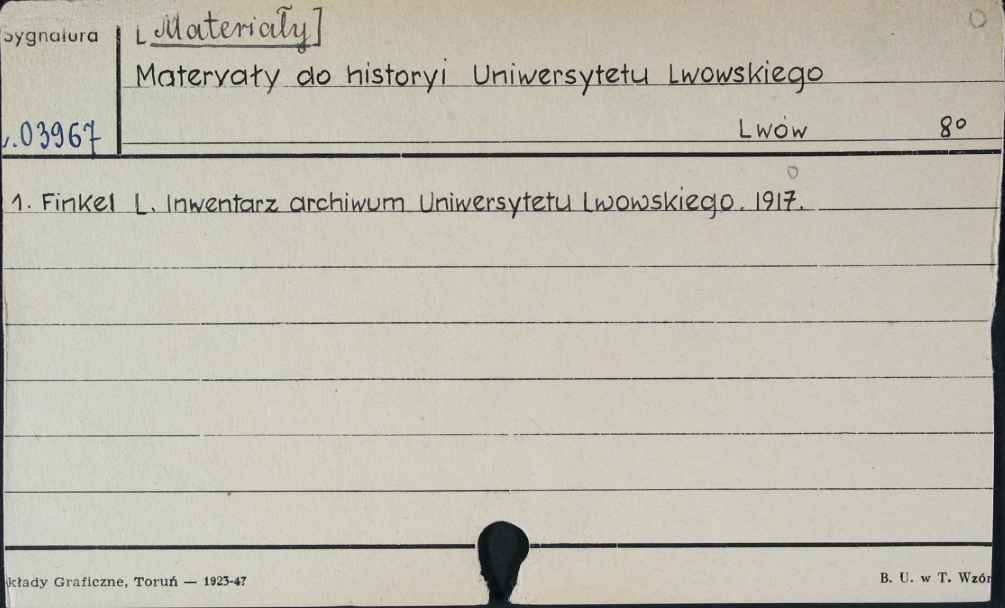 Sygnatura
[Materiały]
Materyały do historyi Uniwersytetu Lwowskiego
03967
Lwów 8º
1. Finkel L. Inwentarz archiwum Uniwersytetu Lwowskiego. 1917.
kłady Graficzne, Toruń — 1923-47
B. U. w T. Wzór